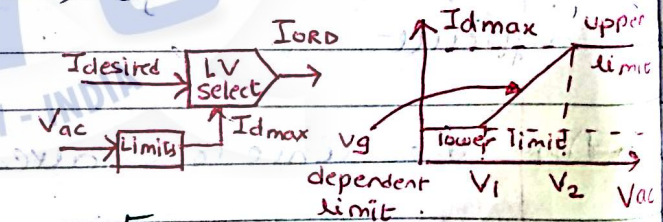 IORD
Idesired
LV
Select
Vac
Limits
Idmax
Idmax
upper
limit
vg
dependent
limit
lower limit
V1
V2
Vac
INDIA